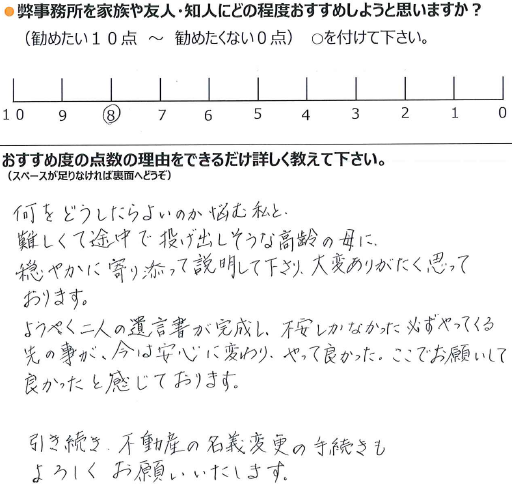 ●弊事務所を家族や友人・知人にどの程度おすすめしようと思いますか？
（勧めたい１０点　～　勧めたくない０点）　○を付けて下さい。
10 9 8 7 6 5 4 3 2 1 0
おすすめ度の点数の理由をできるだけ詳しく教えて下さい。
（スペースが足りなければ裏面へどうぞ）
何をどうしたらよいのか悩む私と、
難しくて途中で投げ出しそうな高齢の母に、
穏やかに寄り添って説明して下さり、大変ありがたく思って
おります。
ようやく二人の遺言書が完成し、不安しかなかった必ずやってくる
先の事が、今は安心に変わり、やって良かった。ここでお願いして
良かったと感じております。
引き続き、不動産の名義変更の手続きも
よろしくお願いいたします。